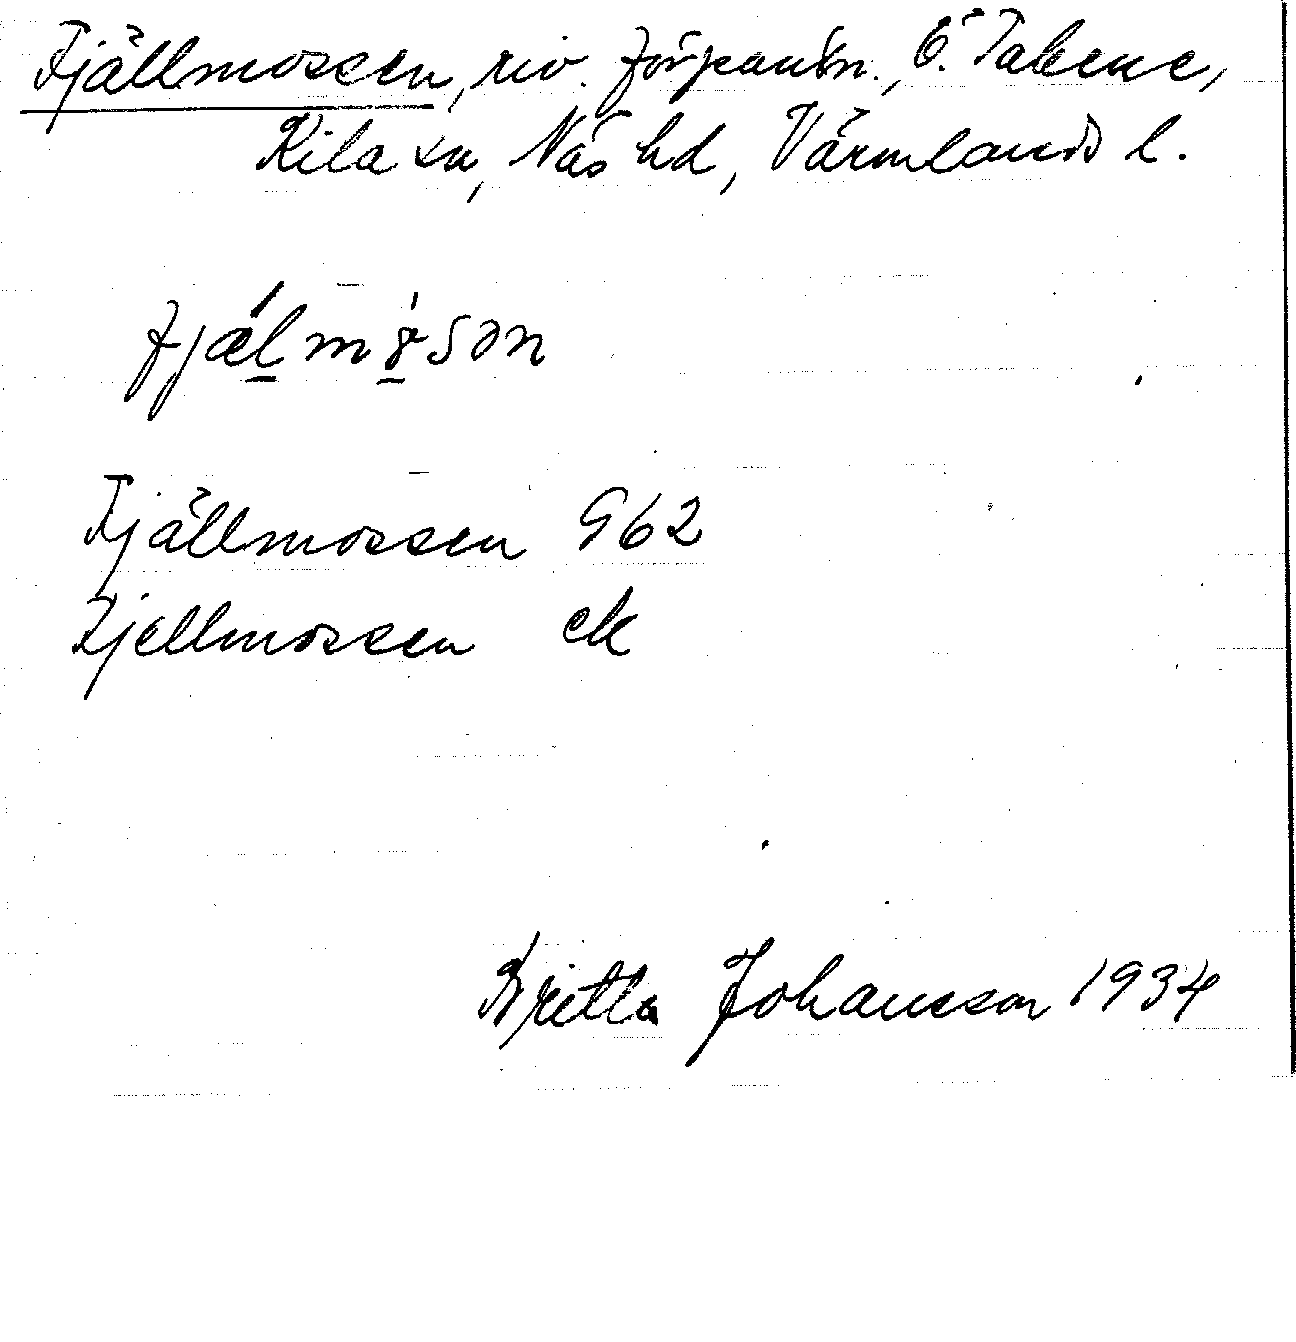 Fjällmossen, riv. förpantn., Ö. Takene,
Kila sn, Näs hd, Värmlands l.
fjælmósən
Fjällmossen G62
Fjellmossen ek
Britta Johansson 1934